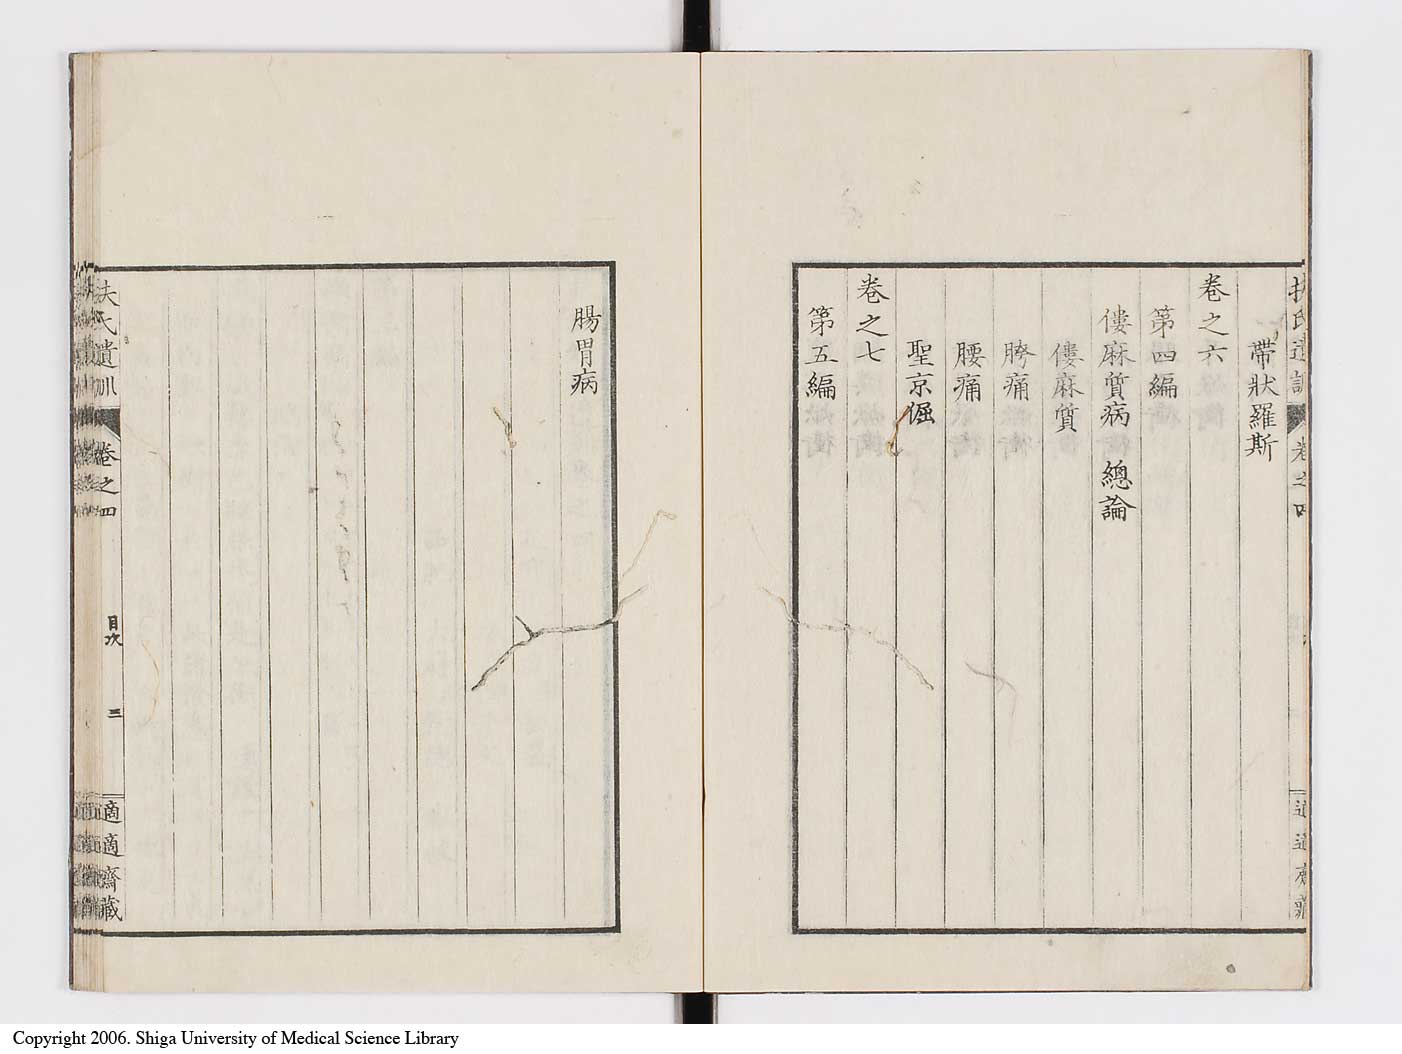 帶狀羅斯
卷之六
第四編
僂麻質病 總論
僂麻質
胯痛
腰痛
聖京倔
卷之七
第五編
腸胃病
扶氏遺訓 卷之四
目次 三
適適齋藏
Copyright 2006. Shiga University of Medical Science Library